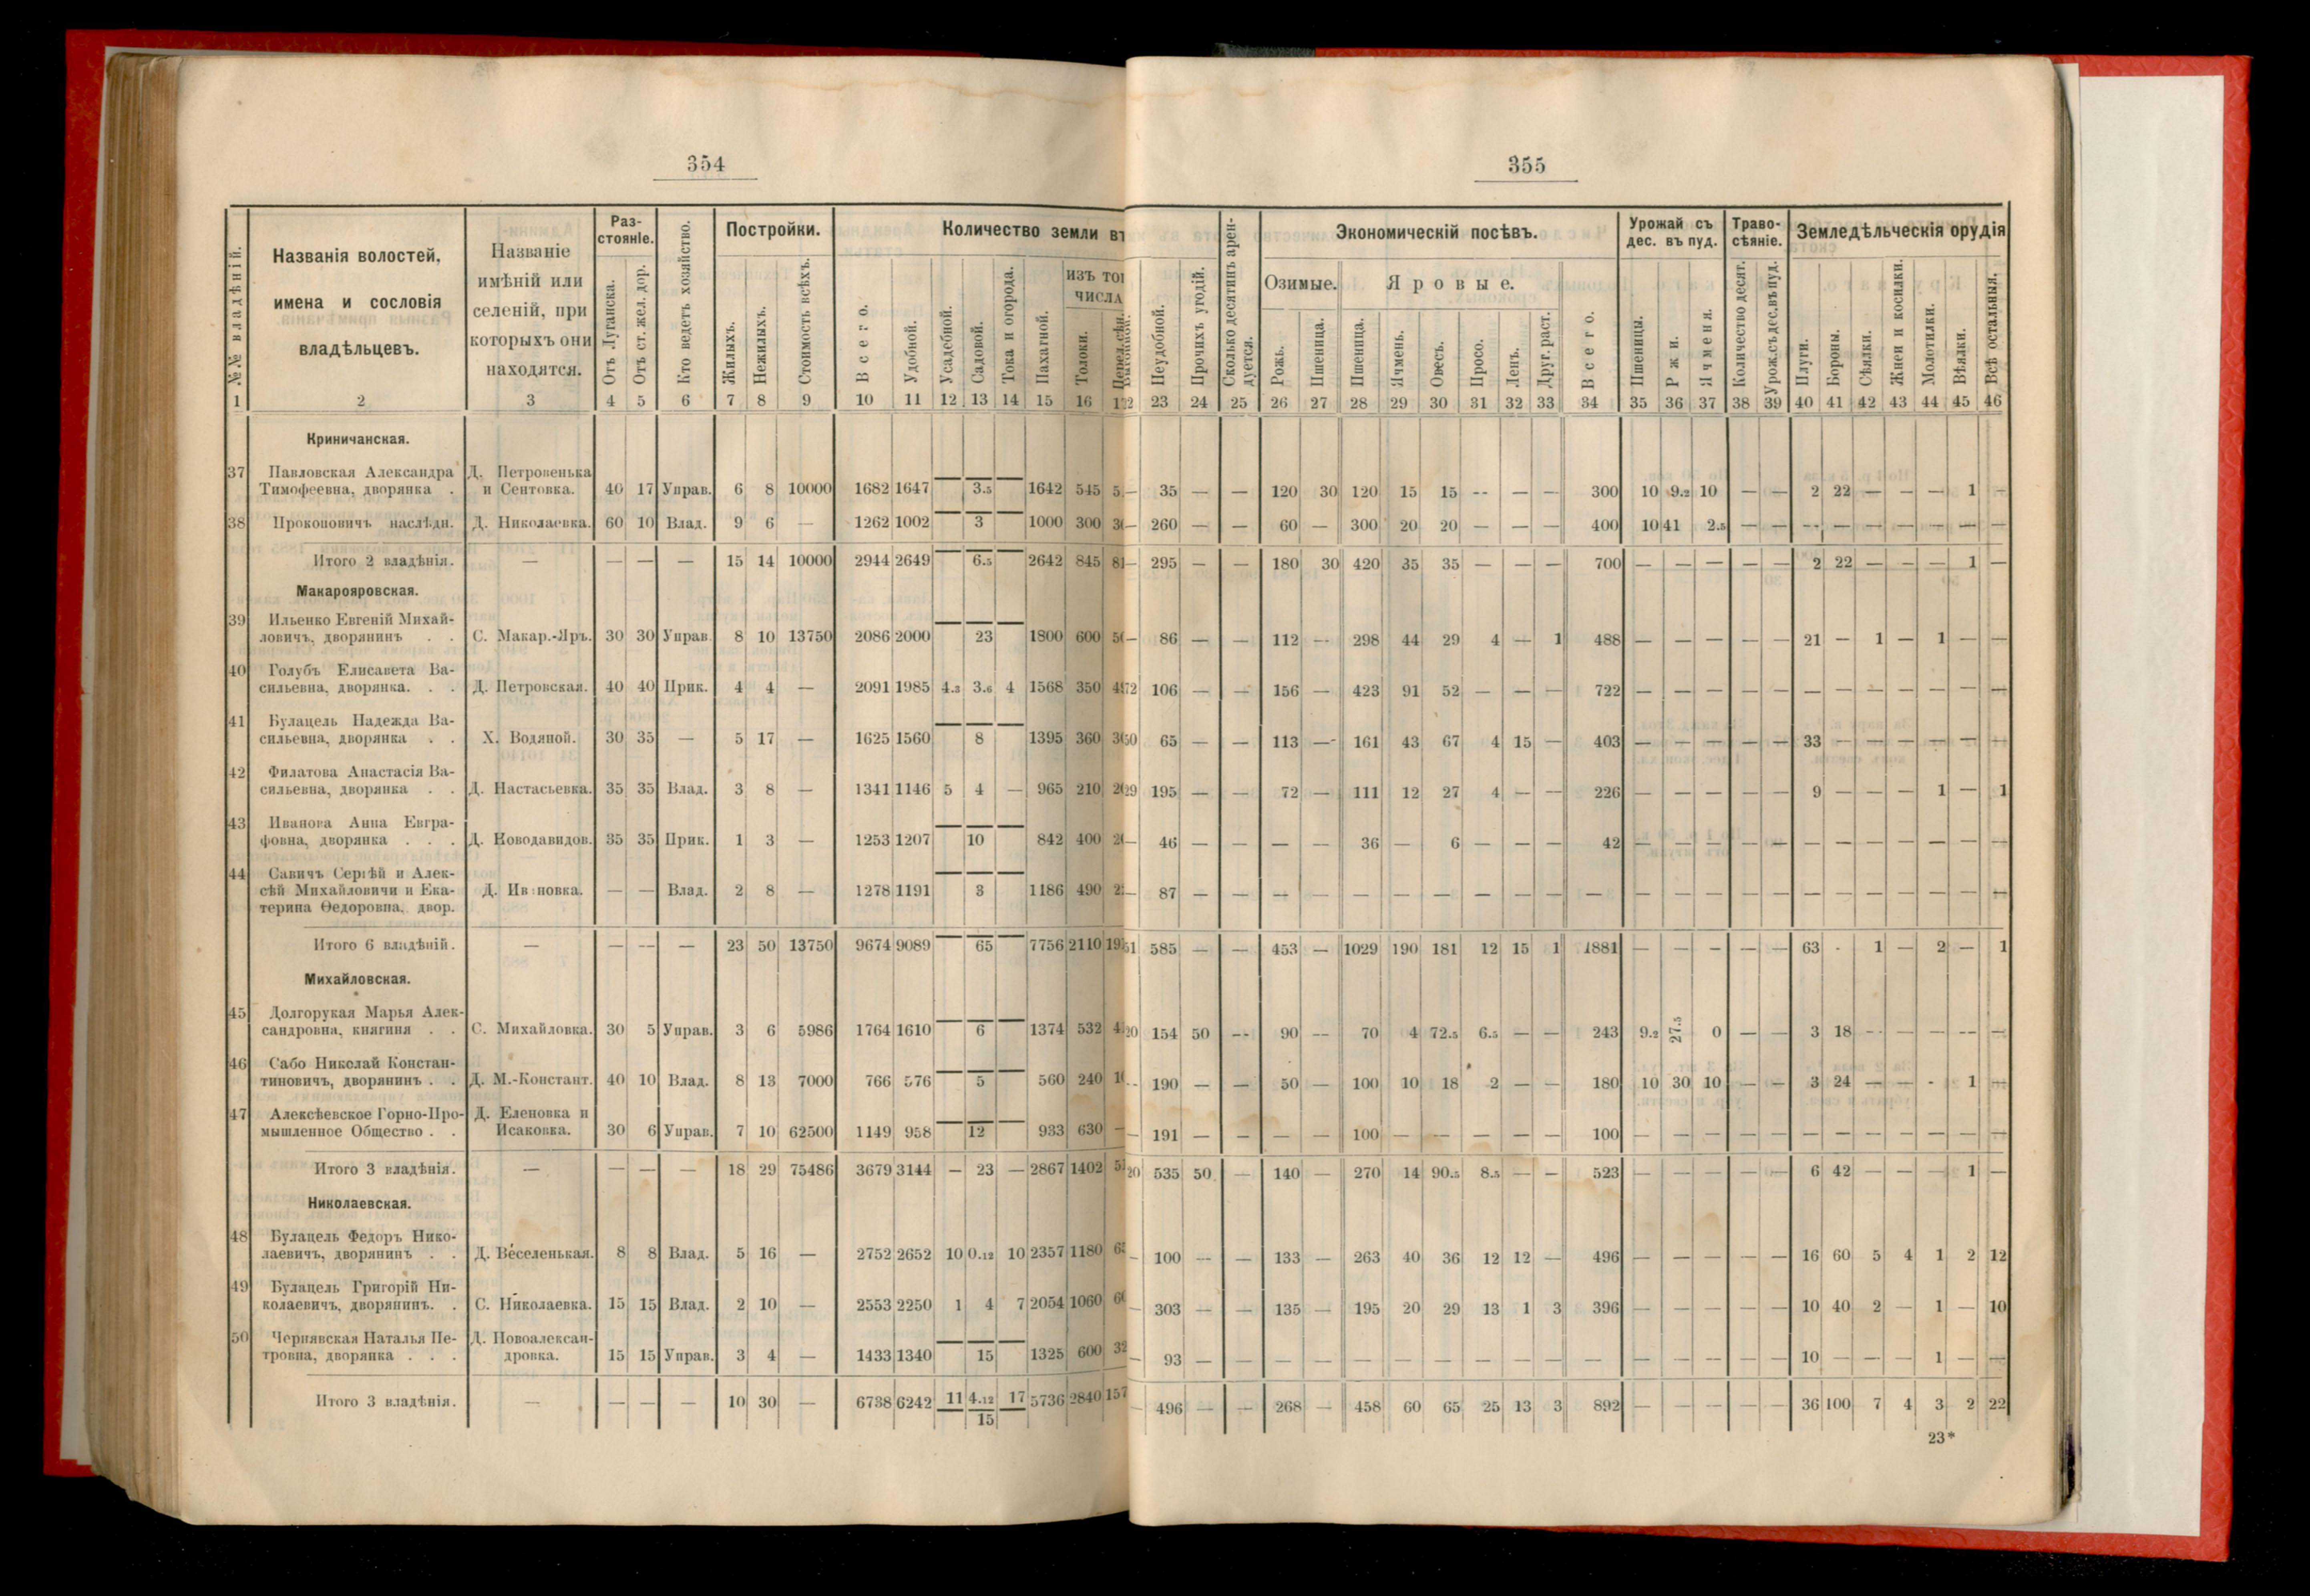 354
№№ владѣній.
Названія волостей,
имена и сословія
владѣльцевъ.
Названіе
имѣній или
селеній, при
которыхъ они
находятся.
Раз-
стояніе.
Отъ Луганска.
Отъ ст. жел. дор.
Кто ведетъ хозяйство.
Постройки.
Жилыхъ.
Нежилыхъ.
Стоимость всѣхъ.
Количество земли въ
Всего.
Удобной.
Усадебной.
Садовой.
Тока и огорода.
Пахатной.
изъ тог
числа
Толоки.
1 2 3 4 5 6 7 8 9 10 11 12 13 14 15 16
Криничанская.
37 Павловская Александра Д. Петровенька
Тимофеевна, дворянка . и Сентовка. 40 17 Управ. 6 8 10000 1682 1647 3.5 1642 545
38 Прокоповичъ наслѣдн. Д. Николаевка. 60 10 Влад. 9 6 — 1262 1002 3 1000 300
Итого 2 владѣнія. — — — — 15 14 10000 2944 2649 6.5 2642 845
Макарояровская.
39 Ильенко Евгеній Михай-
ловичъ, дворянинъ . . С. Макар.-Яръ. 30 30 Управ. 8 10 13750 2086 2000 23 1800 600
40 Голубъ Елисавета Ва-
сильевна, дворянка. . . Д. Петровская. 40 40 Прик. 4 4 — 2091 1985 4.3 3.6 4 1568 350
41 Булацель Надежда Ва-
сильевна, дворянка . . Х. Водяной. 30 35 — 5 17 — 1625 1560 8 1395 360
42 Филатова Анастасія Ва-
сильевна, дворянка . . Д. Настасьевка. 35 35 Влад. 3 8 — 1341 1146 5 4 — 965 210
43 Иванова Анна Евгра-
фовна, дворянка . . . Д. Новодавидов. 35 35 Прик. 1 3 — 1253 1207 10 842 400
44 Савичъ Сергѣй и Алек-
сѣй Михайловичи и Ека- Д. Ив новка. — — Влад. 2 8 — 1278 1191 3 1186 490
терина Ѳедоровна, двор.
Итого 6 владѣній. — — — — 23 50 13750 9674 9089 65 7756 2110
Михайловская.
45 Долгорукая Марья Алек-
сандровна, княгиня . . С. Михайловка. 30 5 Управ. 3 6 5986 1764 1610 6 1374 532
46 Сабо Николай Констан-
тиновичъ, дворянинъ . . Д. М.-Констант. 40 10 Влад. 8 13 7000 766 576 5 560 240
47 Алексѣевское Горно-Про- Д. Еленовка и
мышленное Общество . . Исаковка. 30 6 Управ. 7 10 62500 1149 958 12 933 630
Итого 3 владѣнія. — — — — 18 29 75486 3679 3144 — 23 — 2867 1402
Николаевская.
48 Булацель Федоръ Нико-
лаевичъ, дворянинъ . . Д. Веселенькая. 8 8 Влад. 5 16 — 2752 2652 10 0.12 10 2357 1180
49 Булацель Григорій Ни-
колаевичъ, дворянинъ. . С. Николаевка. 15 15 Влад. 2 10 — 2553 2250 1 4 7 2054 1060
50 Чернявская Наталья Пе- Д. Новоалексан-
тровна, дворянка . . . дровка. 15 15 Управ. 3 4 — 1433 1340 15 1325 600
Итого 3 владѣнія. — — — — 10 30 — 6738 6242 11 4.12 17 5736 2840
15
355
Неудобной.
Прочихъ угодій.
Сколько десятинъ арен-
дуется.
Экономическій посѣвъ.
Озимые.
Яровые.
Рожь.
Пшеница.
Пшеница.
Ячмень.
Овесъ.
Просо.
Ленъ.
Друг. раст.
Всего.
Урожай съ
дес. въ пуд.
Пшеницы.
Ржи.
Ячменя.
Траво-
сѣяніе.
Количество десят.
Урож. съ дес. въ пуд.
Земледѣльческія орудія
Плуги.
Бороны.
Сѣялки.
Жнеи и косилки.
Молотилки.
Вѣялки.
Всѣ остальныя.
23 24 25 26 27 28 29 30 31 32 33 34 35 36 37 38 39 40 41 42 43 44 45 46
— 35 — — 120 30 120 15 15 -- — — 300 10 9.2 10 — — 2 22 — — — 1 —
— 260 — — 60 — 300 20 20 — — — 400 10 41 2.5 — — — — — — — — —
— 295 — — 180 30 420 35 35 — — — 700 — — — — — 2 22 — — — 1 —
— 86 — — 112 — 298 44 29 4 — 1 488 — — — — — 21 — 1 — 1 — —
72 106 — — 156 — 423 91 52 — — — 722 — — — — — — — — — — — —
50 65 — — 113 — 161 43 67 4 15 — 403 — — — — — 33 — — — — — —
29 195 — — 72 — 111 12 27 4 — — 226 — — — — — 9 — — — 1 — 1
— 46 — — — — 36 — 6 — — — 42 — — — — — — — — — — — —
— 87 — — — — — — — — — — — — — — — — — — — — — — —
51 585 — — 453 — 1029 190 181 12 15 1 1881 — — — — — 63 - 1 — 2 — 1
20 154 50 — 90 — 70 4 72.5 6.5 — — 243 9.2 27.5 0 — — 3 18 — — — — —
— 190 — — 50 — 100 10 18 2 — — 180 10 30 10 — — 3 24 — — - 1 —
— 191 — — — — 100 — — — — — 100 — — — — — — — — — — — —
20 535 50 — 140 — 270 14 90.5 8.5 — — 523 — — — — — 6 42 — — — 1 —
— 100 — — 133 — 263 40 36 12 12 — 496 — — — — — 16 60 5 4 1 2 12
— 303 — — 135 — 195 20 29 13 1 3 396 — — — — — 10 40 2 — 1 — 10
— 93 — — — — — — — — — — — — — — — — 10 — — — 1 — —
— 496 — — 268 — 458 60 65 25 13 3 892 — — — — — 36 100 7 4 3 2 22
23*